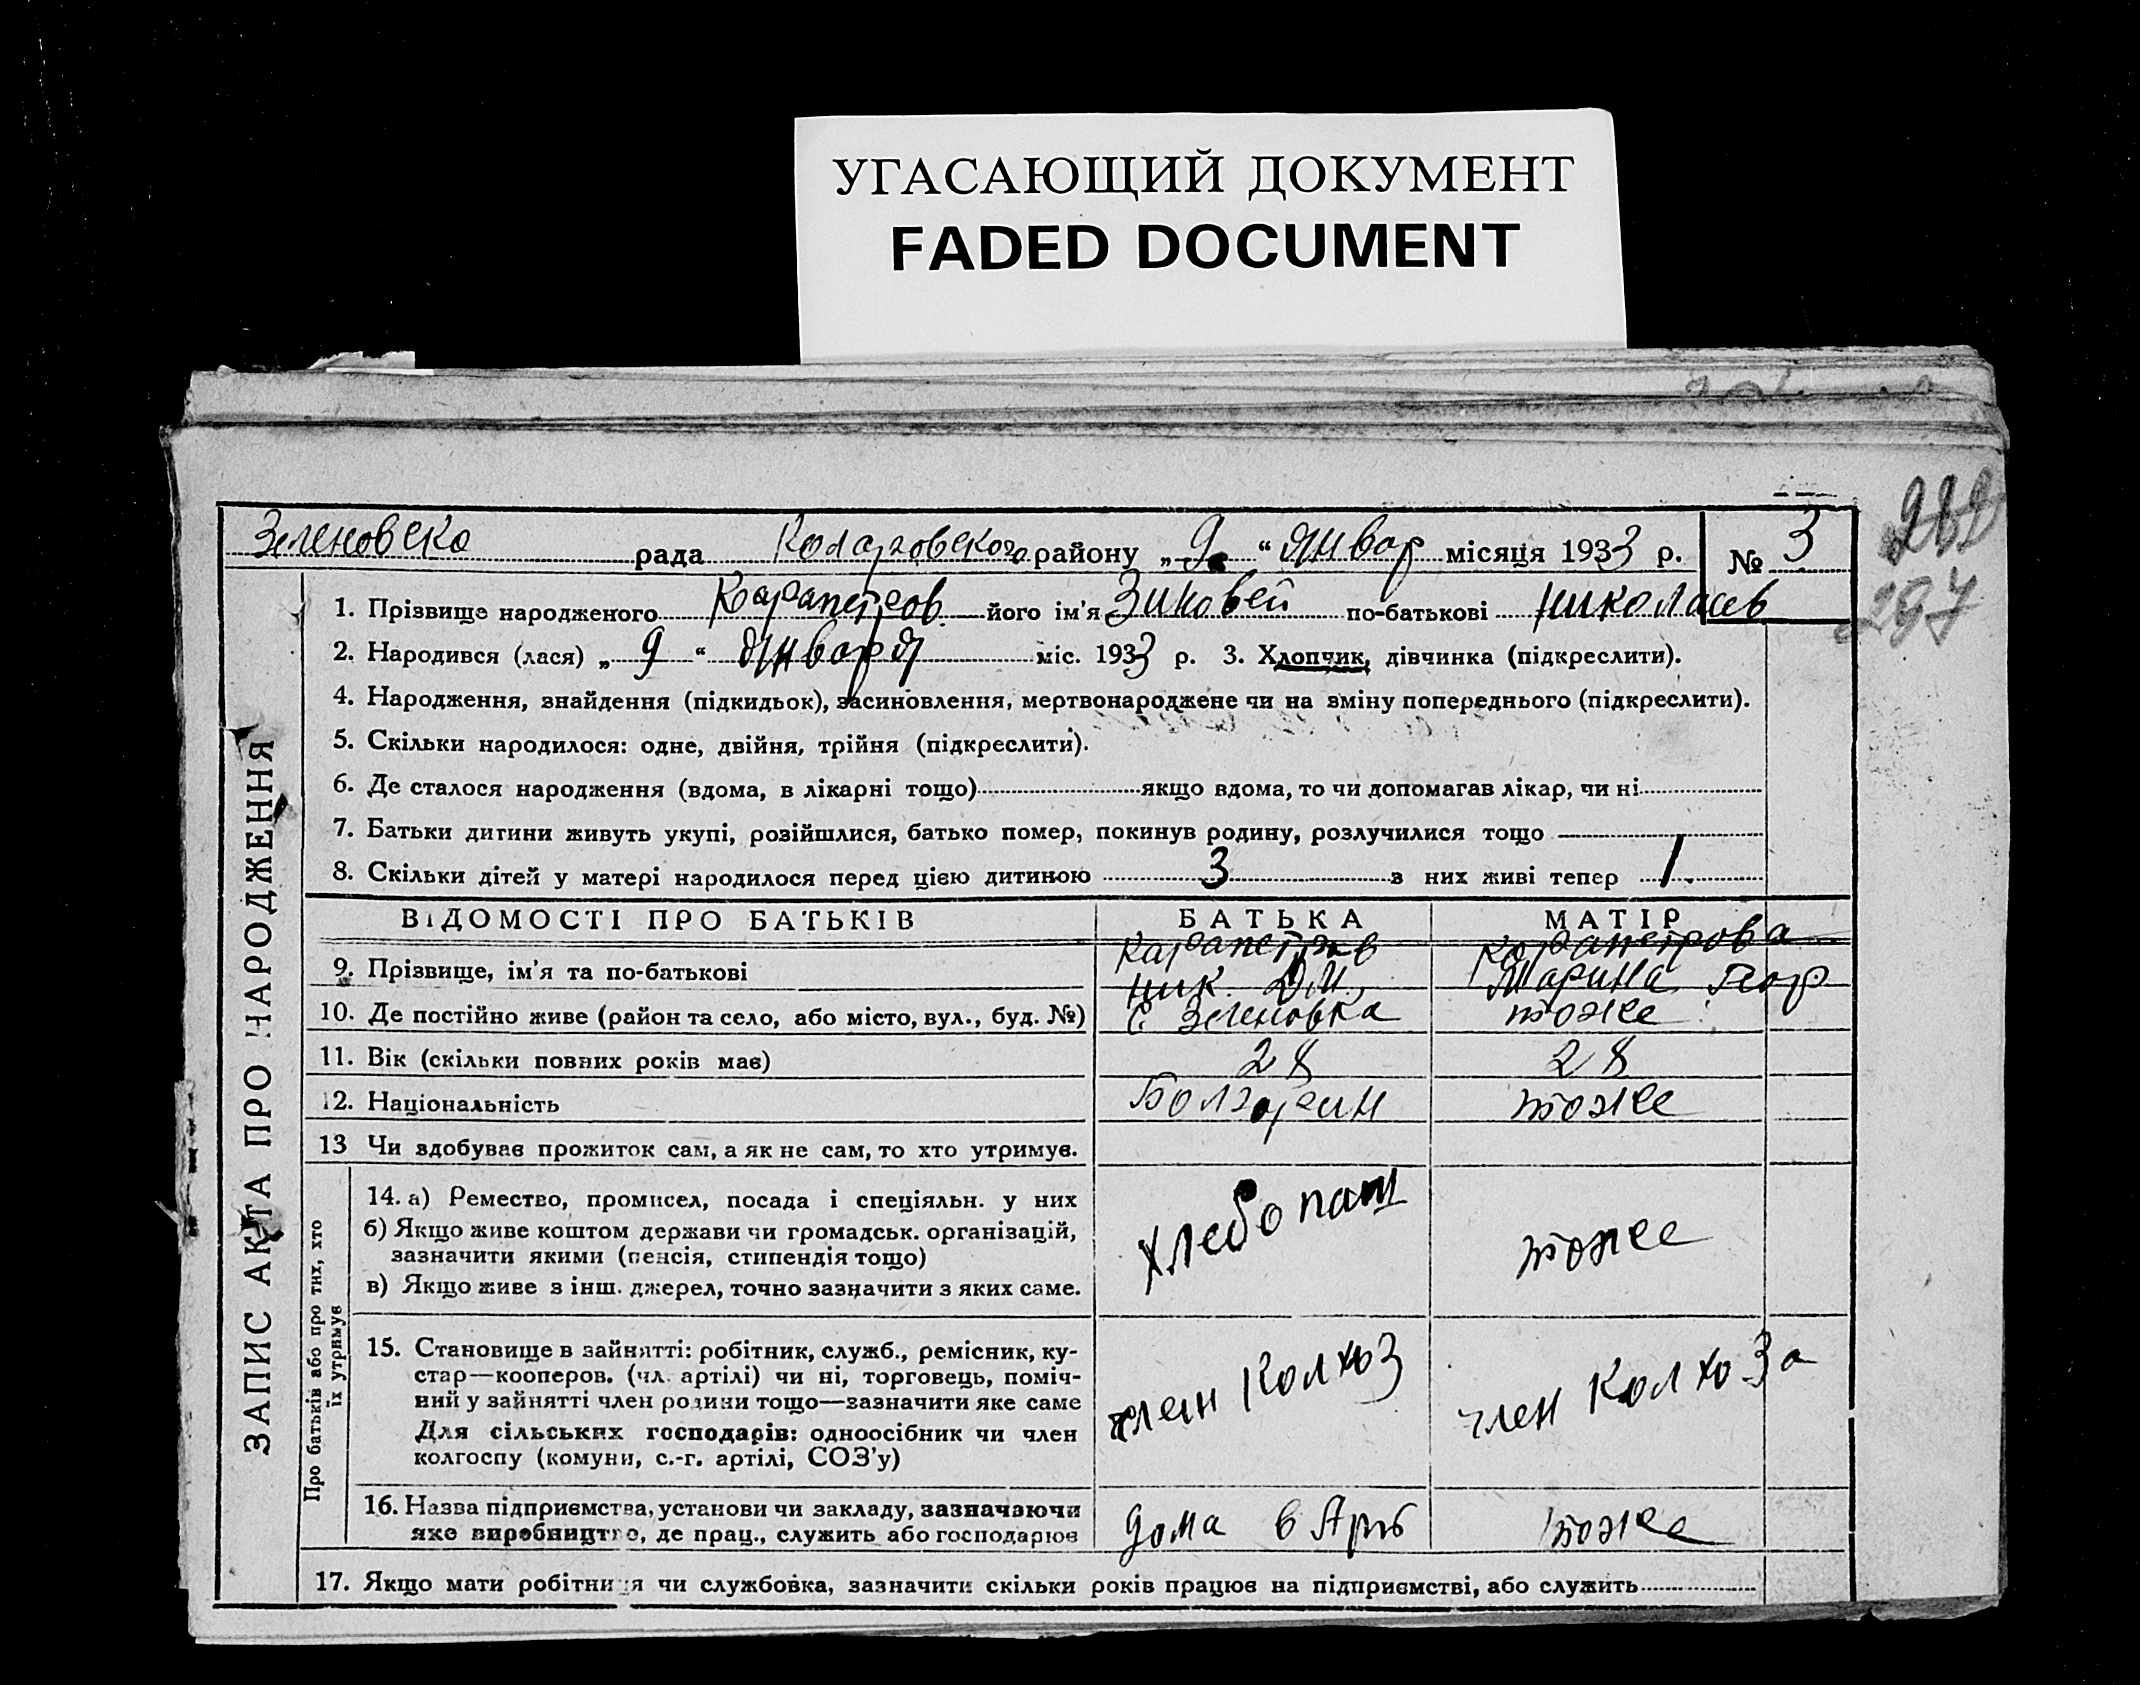 УГАСАЮЩИЙ ДОКУМЕНТ
FADED DOCUMENT
297
Зеленовска рада Коларовского району „ 9 “ Январ місяця 1933 р. № 3
1. Прізвище народженого Карапетров його ім'я Зиновей по-батькові Николаев
2. Народився (лася) „ 9 “ января міс. 1933 р. 3. Хлопчик, дівчинка (підкреслити).
4. Народження, знайдення (підкидьок), засиновлення, мертвонароджене чи на зміну попереднього (підкреслити).
5. Скільки народилося: одне, двійня, трійня (підкреслити).
6. Де сталося народження (вдома, в лікарні тощо) якщо вдома, то чи допомагав лікар, чи ні
7. Батьки дитини живуть укупі, розійшлися, батько помер, покинув родину, розлучилися тощо
8. Скільки дітей у матері народилося перед цією дитиною 3 з них живі тепер 1.
ЗАПИС АКТА ПРО НАРОДЖЕННЯ
ВІДОМОСТІ ПРО БАТЬКІВ БАТЬКА МАТІР
Карапетров Карапетрова
9. Прізвище, ім'я та по-батькові Ник. Дм. Марина
10. Де постійно живе (район та село, або місто, вул., буд. №) С. Зеленовка тоже
11. Вік (скільки повних років має) 28 28
12. Національність Болгарин тоже
13 Чи здобуває прожиток сам, а як не сам, то хто утримує.
Про батьків або про тих, хто
їх утримує
14. а) Ремество, промисел, посада і спеціяльн. у них хлебопаш тоже
б) Якщо живе коштом держави чи громадськ. організацій,
зазначити якими (пенсія, стипендія тощо)
в) Якщо живе з інш. джерел, точно зазначити з яких саме.
15. Становище в зайнятті: робітник, служб., ремісник, ку-
стар—кооперов. (чл. артілі) чи ні, торговець, поміч- член Колхоз член Колхоза
ний у зайнятті член родини тощо—зазначити яке саме
Для сільських господарів: одноосібник чи член
колгоспу (комуни, с.-г. артілі, СОЗ'у)
16. Назва підприємства, установи чи закладу, зазначаючи
яке виробництво, де прац., служить або господарює дома в Арт тоже
17. Якщо мати робітниця чи службовка, зазначити скільки років працює на підприємстві, або служить